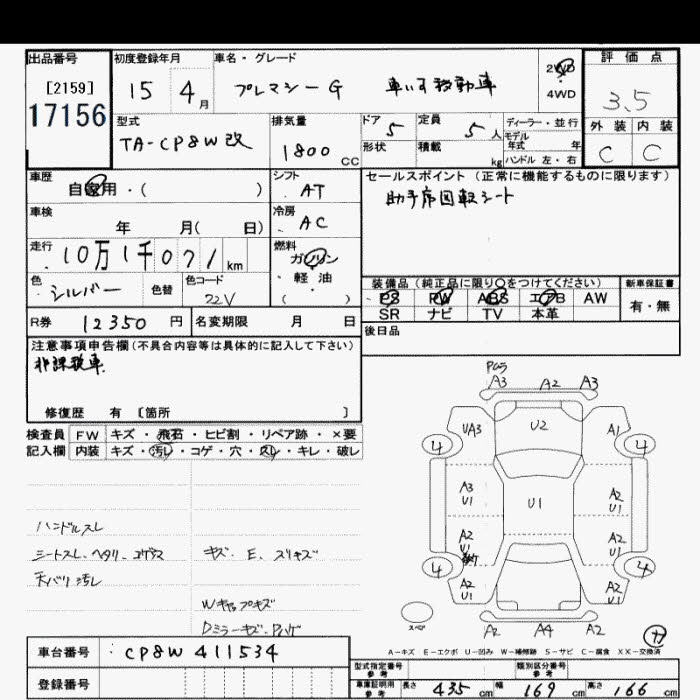 出品番号 初度登録年月 車名・グレード 2WD 評価点
[2159] 15 4月 プレマシーG 車いす移動車 4WD 3.5
17156 型式 排気量 ドア 5 定員 5人 ディーラー・並行 外装 内装
TA-CP8W改 1800 CC 形状 積載 kg モデル年式 年 ハンドル 左・右 C C
車歴 自家用・( ) シフト AT セールスポイント (正常に機能するものに限ります)
車検 年 月( 日) 冷房 AC 助手席回転シート
走行 10万1千071km 燃料 ガソリン・軽油 ( )
色 シルバー 色替 色コード 22V 装備品 (純正品に限り○をつけてください) 新車保証書
PS PW ABS エアB AW 有・無
SR ナビ TV 本革
R券 12350円 名変期限 月 日 後日品
注意事項申告欄(不具合内容等は具体的に記入して下さい)
非課税車
修復歴 有 〔箇所 〕
検査員 FW キズ・飛石・ヒビ割・リペア跡・×要
記入欄 内装 キズ・汚レ・コゲ・穴・スレ・キレ・破レ
A3 A2 A3
UA3 U2 A1
4 4
A3 U1 U1 A2 U1
A2 U1 A2 U1
4 4
A2 U1 A2 U1
スペア A2 A4 A2
ハンドルスレ
シートスレ、ヘタリ、コゲ穴 キズ、E、スリキズ
天バリ汚レ
Wキャップキズ
Dミラーキズ、ハゲ
A-キズ E-エクボ U-凹み W-補修跡 S-サビ C-腐食 XX-交換済
車台番号 CP8W 411534
登録番号 型式指定番号 参考 類別区分番号 参考
車庫証明用 参考 長さ 435cm 幅 169cm 高さ 166cm